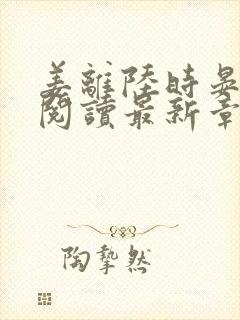 姜離陸時晏
閱讀最新章
陶摯然